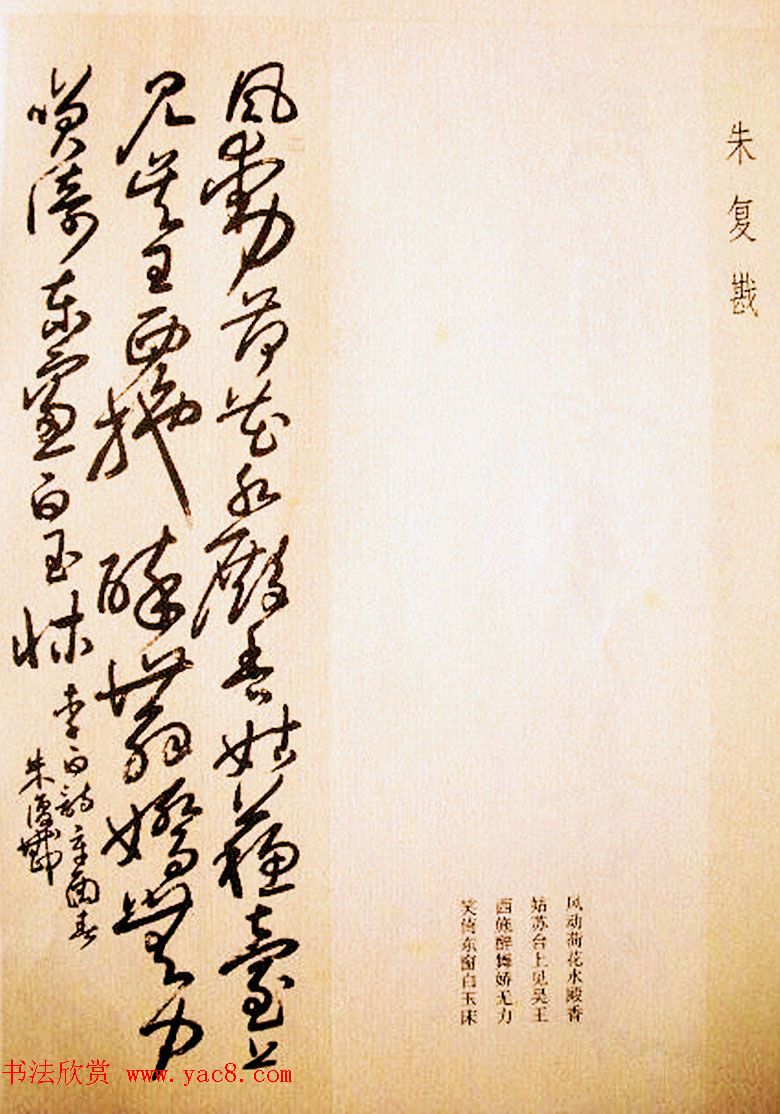 朱复戡
风动荷花水殿香
姑苏台上见吴王
西施醉舞娇无力
笑倚东窗白玉床
風動荷花水殿香姑蘇臺上
見吴王西施醉舞嬌無力
笑倚東窗白玉床
李白詩辛酉春
朱復戡
书法欣赏 www.yac8.com